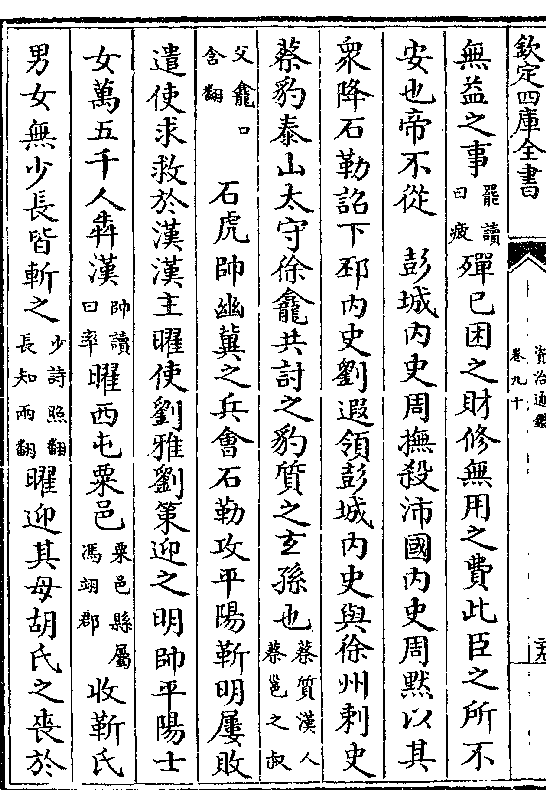 欽定四庫全書
資治通鑑
卷九十
無益之事罷讀曰疲殫已困之財修無用之費此臣之所不
安也帝不從　彭城内史周撫殺沛國内史周黙以其
衆降石勒詔下邳内史劉遐領彭城内史與徐州刺史
蔡豹泰山太守徐龕共討之豹質之玄孫也蔡質漢人蔡邕之叔
父龕口含翻　石虎帥幽冀之兵會石勒攻平陽靳明屢敗
遣使求救於漢漢主曜使劉雅劉策迎之明帥平陽士
女萬五千人犇漢帥讀曰率曜西屯粟邑粟邑縣屬馮翊郡收靳氏
男女無少長皆斬之少詩照翻長知兩翻曜迎其母胡氏之喪於